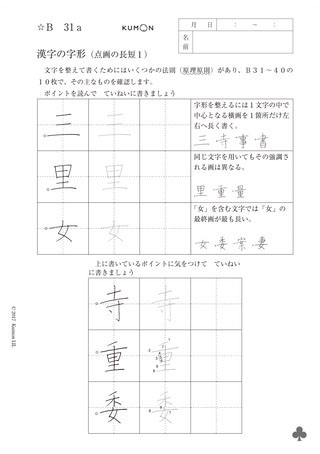 ☆B 31a
KUMON
月 日 : ～ :
名前
漢字の字形（点画の長短１）
文字を整えて書くためにはいくつかの法則（原理原則）があり、Ｂ３１～４０の
１０枚で、その主なものを確認します。
ポイントを読んで ていねいに書きましょう
三 三
字形を整えるには１文字の中で
中心となる横画を１箇所だけ左
右へ長く書く。
三 寺 事 書
里 里
同じ文字を用いてもその強調さ
れる画は異なる。
里 重 量
女 女
「女」を含む文字では「女」の
最終画が最も長い。
女 委 案 妻
上に書いているポイントに気をつけて ていねい
に書きましょう
寺 寺
重 重
委 委
© 2017 Kumon IJL